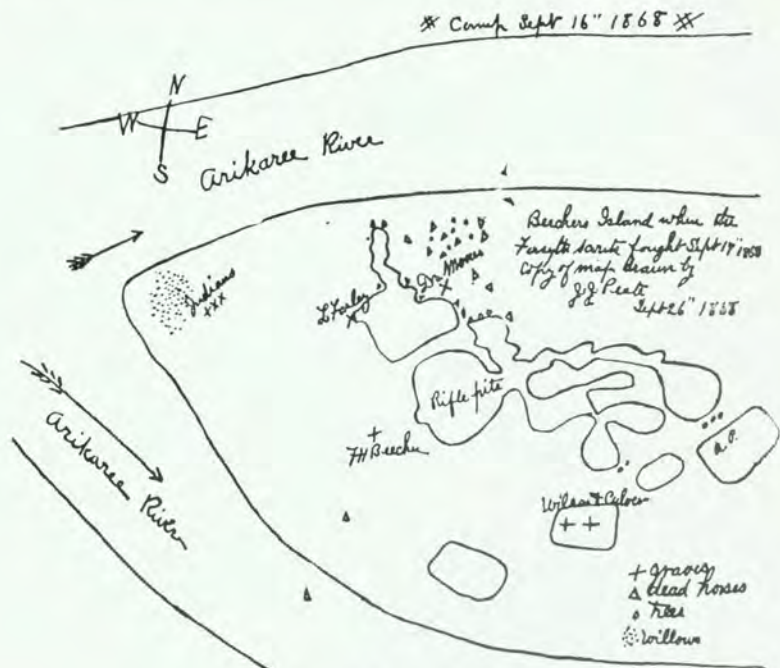 Camp Sept 16" 1868
N
W E
S
Arikaree River
Beechers Island where the
Forsyth scouts fought Sept 17" 1868
Copy of map drawn by
J J Peate
Sept 26" 1868
Dr Moores
Indians
L Farley
Rifle pits
FH Beecher
Arikaree River
Wilson & Culver
graves
dead horses
trees
willows